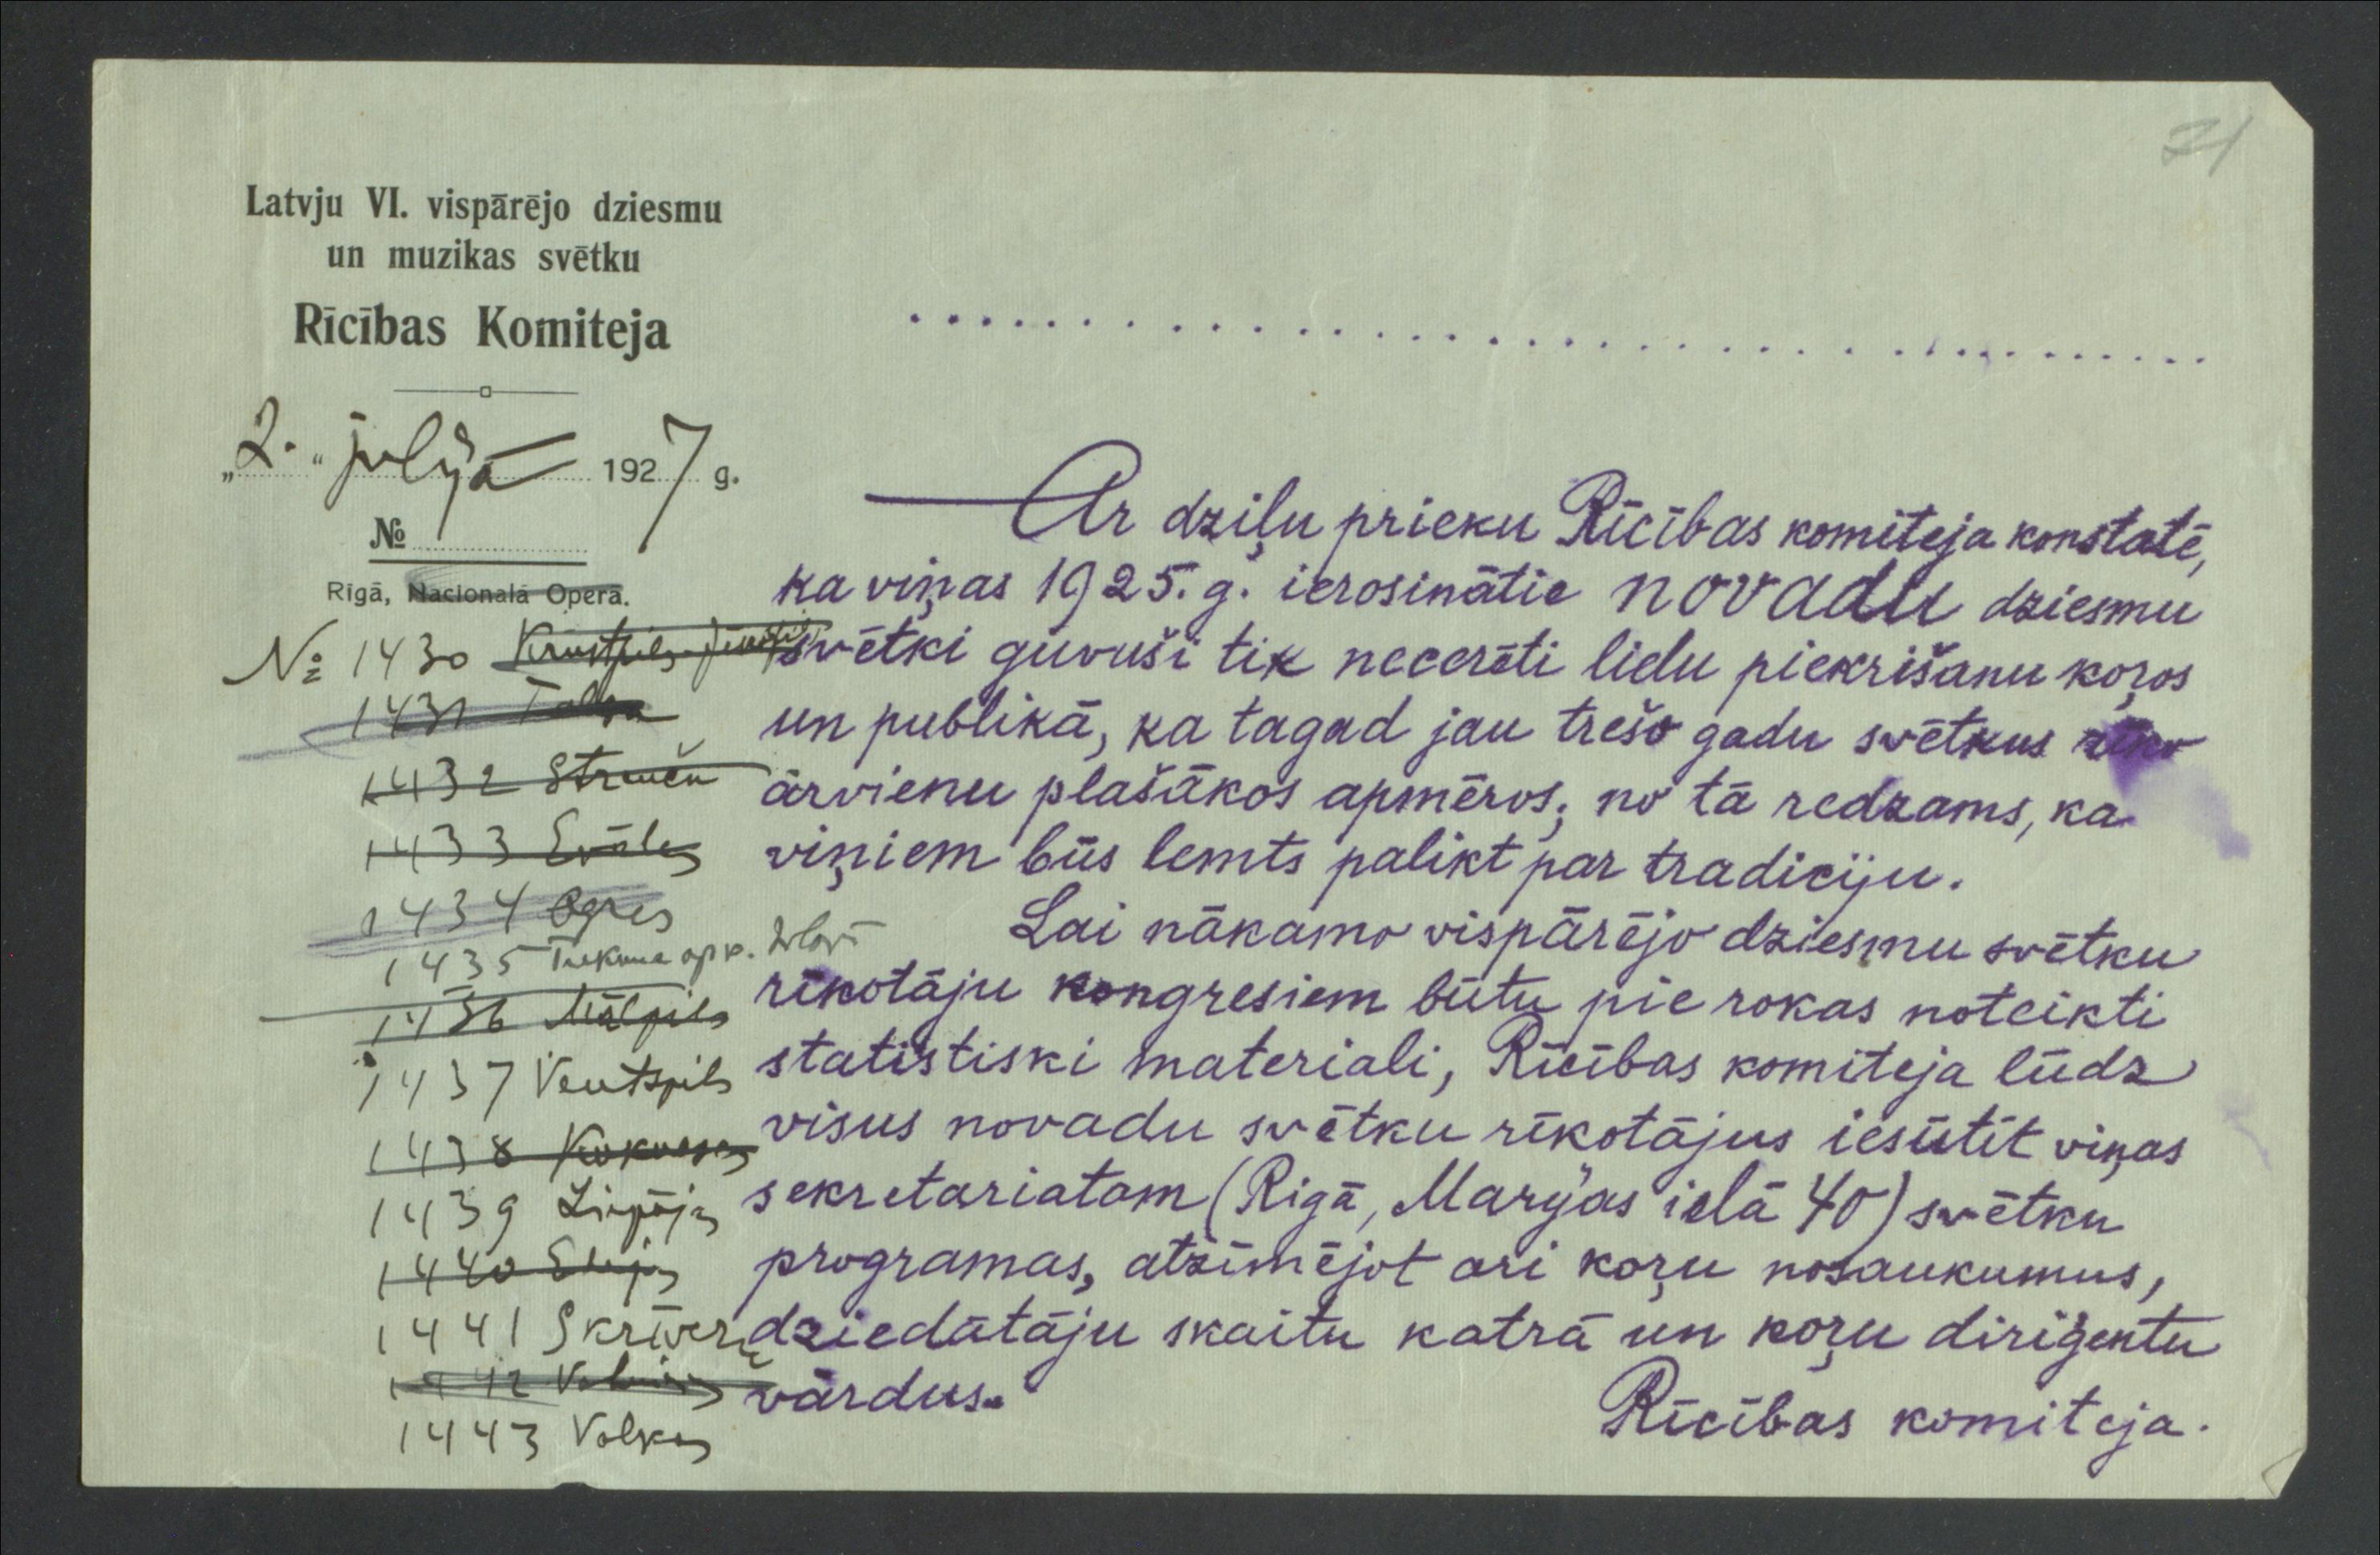 Latvju VI. vispārējo dziesmu
un muzikas svētku
Rīcības Komiteja
„2.“ julijā 1927 g.
№
Rīgā, Nacionalā Operā.
№ 1430 Krustpils-
1431 Talsu
1432 Strenču
1433 Ēvāles
1434 Ogres
1435 Tukuma apr.
1436 Mālpils
1437 Ventspils
1438 Kokneses
1439 Liepājas
1440 Elejas
1441 Skrīveru
1442 Valmieras
1443 Valkas
Ar dziļu prieku Rīcības komiteja konstatē,
ka viņas 1925. g. ierosinātie novadu dziesmu
svētki guvuši tik necerēti lielu piekrišanu koŗos
un publikā, ka tagad jau trešo gadu svētkus rīko
ārvienu plašākos apmēros; no tā redzams, ka
viņiem būs lemts palikt par tradiciju.
Lai nākamo vispārējo dziesmu svētku
rīkotāju kongresiem būtu pie rokas noteikti
statistiski materiali, Rīcības komiteja lūdz
visus novadu svētku rīkotājus iesūtīt viņas
sekretariatam (Rigā, Marijas ielā 40) svētku
programas, atzīmējot ari koŗu nosaukumus,
dziedātāju skaitu katrā un koŗu diriģentu
vārdus.
Rīcības komiteja.